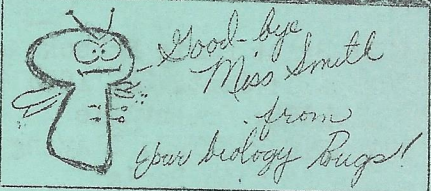 Good-bye
Miss Smith
from
your biology Bugs!